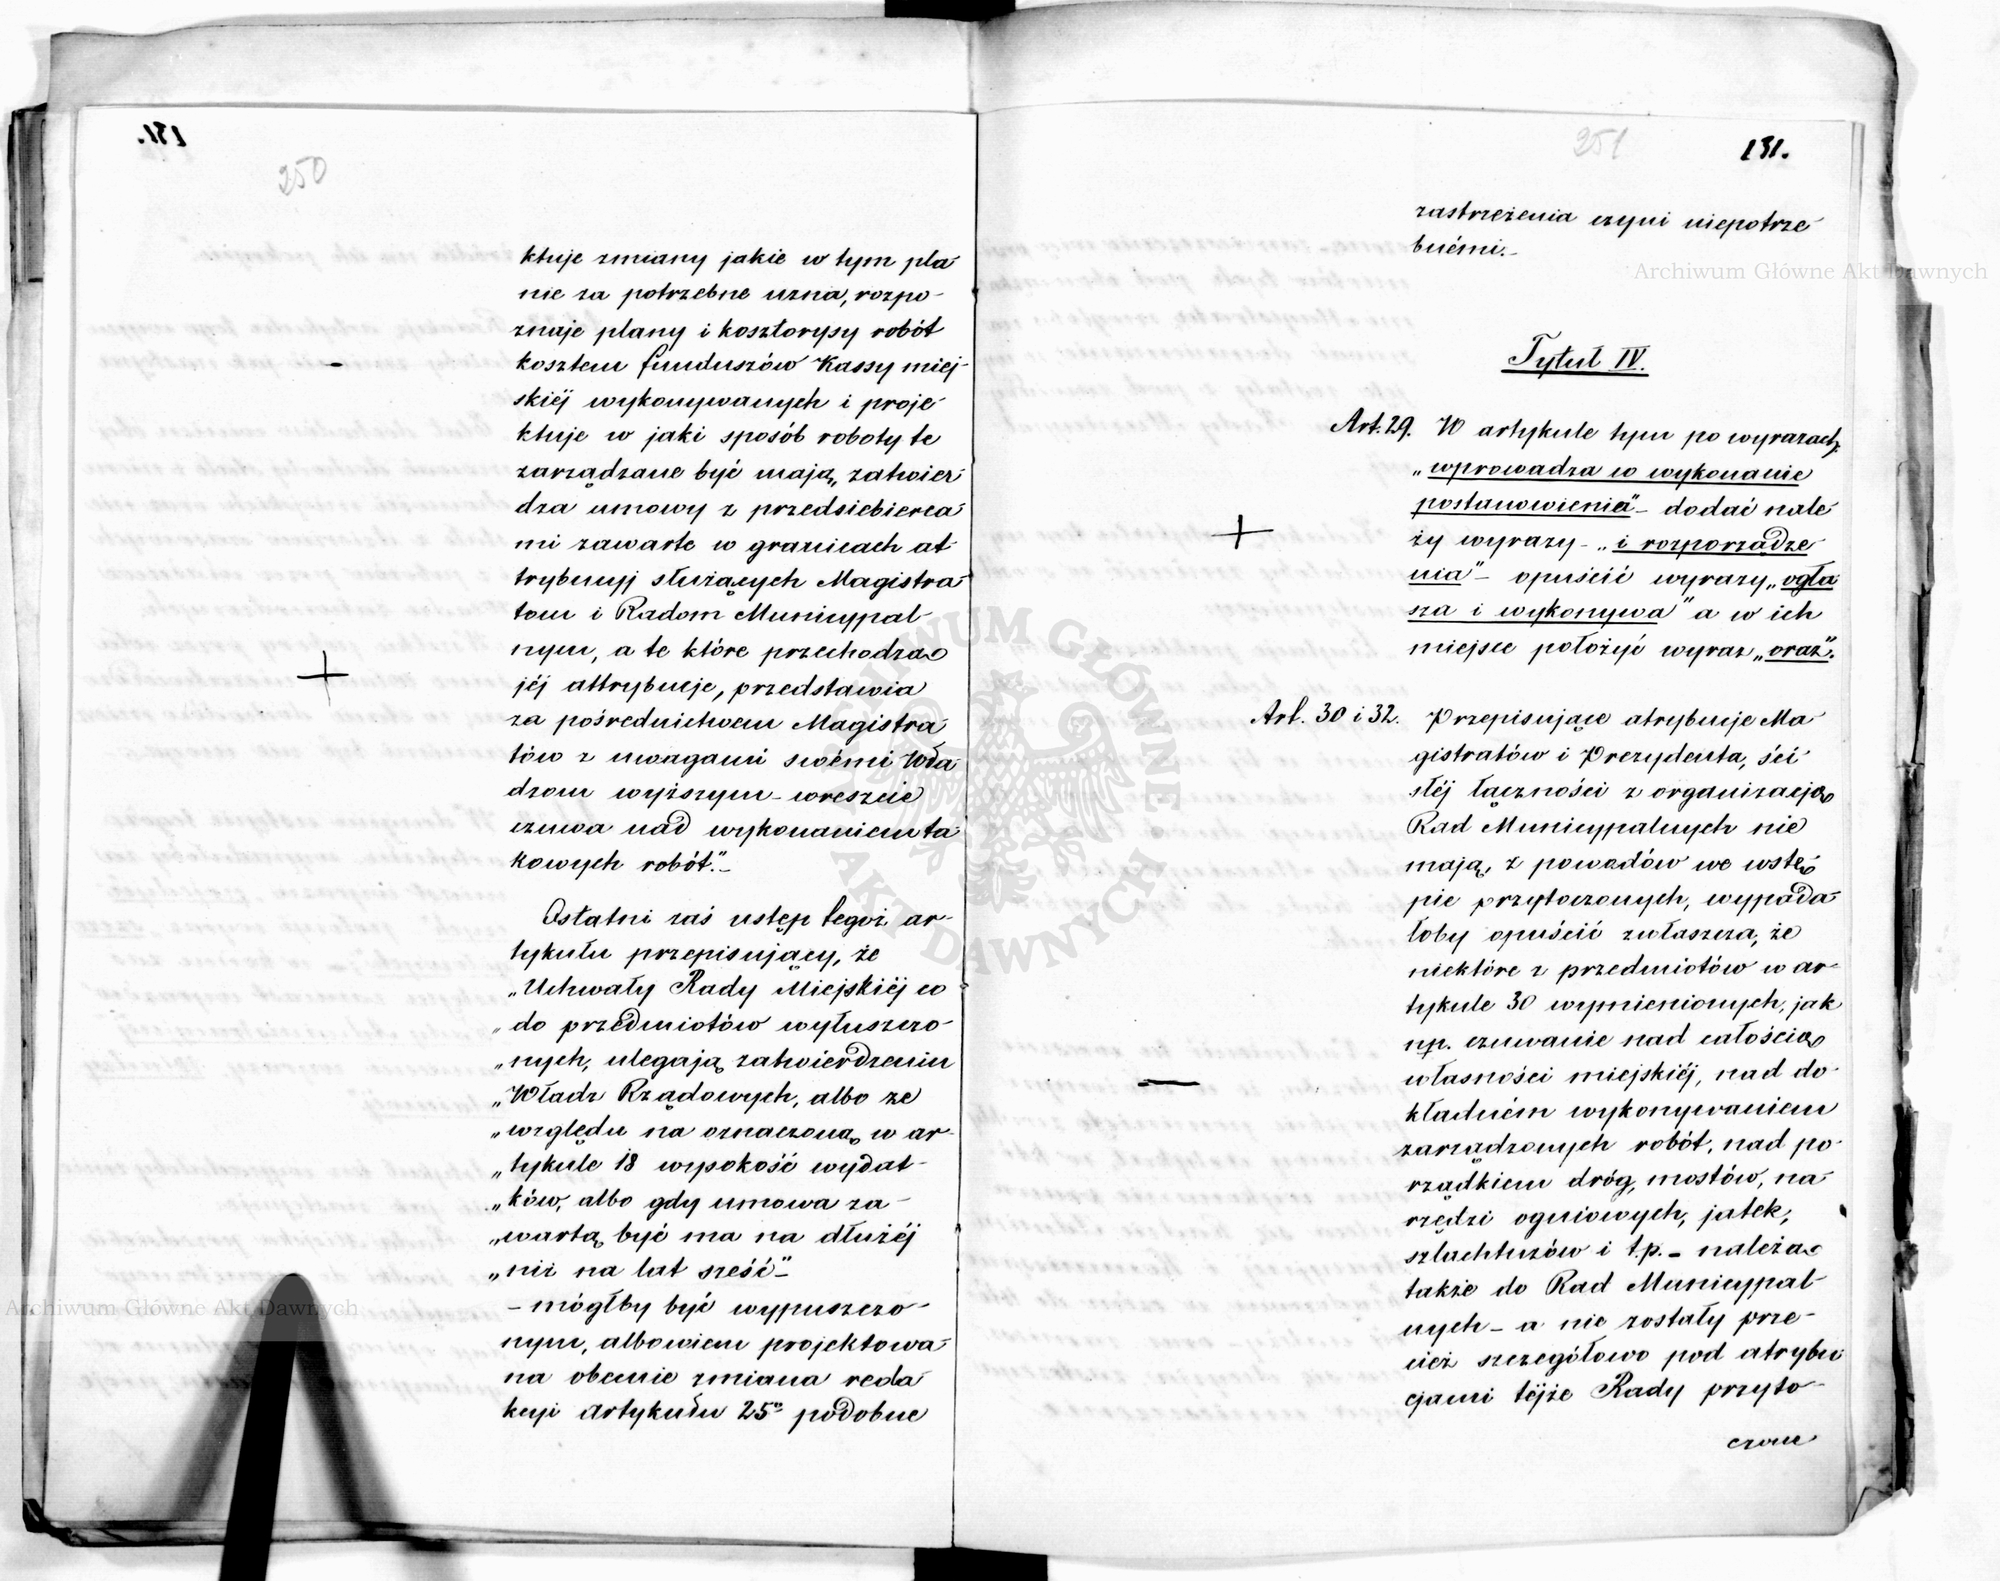 250
ktuje zmiany jakie w tym pla-
nie za potrzebne uzna, rozpo-
znaje plany i kosztorysy robót
kosztem funduszów Kassy miej-
skiéj wykonywanych i proje-
ktuje w jaki sposób roboty te
zarządzane być mają, zatwier-
dza umowy z przedsiębierca-
mi zawarte w granicach at-
trybucyj służących Magistra-
tom i Radom Municypal-
nym, a te które przechodzą
jéj attrybucje, przedstawia
za pośrednictwem Magistra-
tów z uwagami swémi Wła-
dzom wyższym - wreszcie
czuwa nad wykonaniem ta-
kowych robót."-
Ostatni zaś ustęp tegoż ar-
tykułu przepisujący, że
„Uchwały Rady Miejskiéj co
„do przedmiotów wyłuszczo-
„nych, ulegają zatwierdzeniu
„Władz Rządowych, albo ze
„względu na oznaczoną w ar-
„tykule 18 wysokość wydat-
„ków, albo gdy umowa za-
„wartą być ma na dłużéj
„niż na lat sześć"-
- mógłby być wypuszczo-
nym, albowiem projektowa-
na obecnie zmiana reda-
kcyi artykułu 25º podobne
251
131.
zastrzeżenia czyni niepotrze-
bnémi.-
Tytuł IV.
Art. 29. W artykule tym po wyrazach,
„wprowadza w wykonanie
postanowienia" - dodać nale-
ży wyrazy - „i rozporządze-
nia" - opuścić wyrazy „ogła-
sza i wykonywa" a w ich
miejsce położyć wyraz „oraz".
Art. 30 i 32. Przepisujące atrybucje Ma-
gistratów i Prezydenta, ści-
słéj łączności z organizacją
Rad Municypalnych nie
mają, z powodów we wstę-
pie przytoczonych, wypada-
łoby opuścić zwłaszcza, że
niektóre z przedmiotów w ar-
tykule 30 wymienionych, jak
np. czuwanie nad całością
własności miejskiéj, nad do-
kładném wykonywaniem
zarządzonych robót, nad po-
rządkiem dróg, mostów, na-
rzędzi ogniowych, jatek,
szlachtuzów i t.p. - należą
także do Rad Municypal-
nych - a nie zostały prze-
cież szczegółowo pod atrybu-
cjami téjże Rady przyto-
czone
Archiwum Główne Akt Dawnych
Archiwum Główne Akt Dawnych
ARCHIWUM GŁÓWNE AKT DAWNYCH